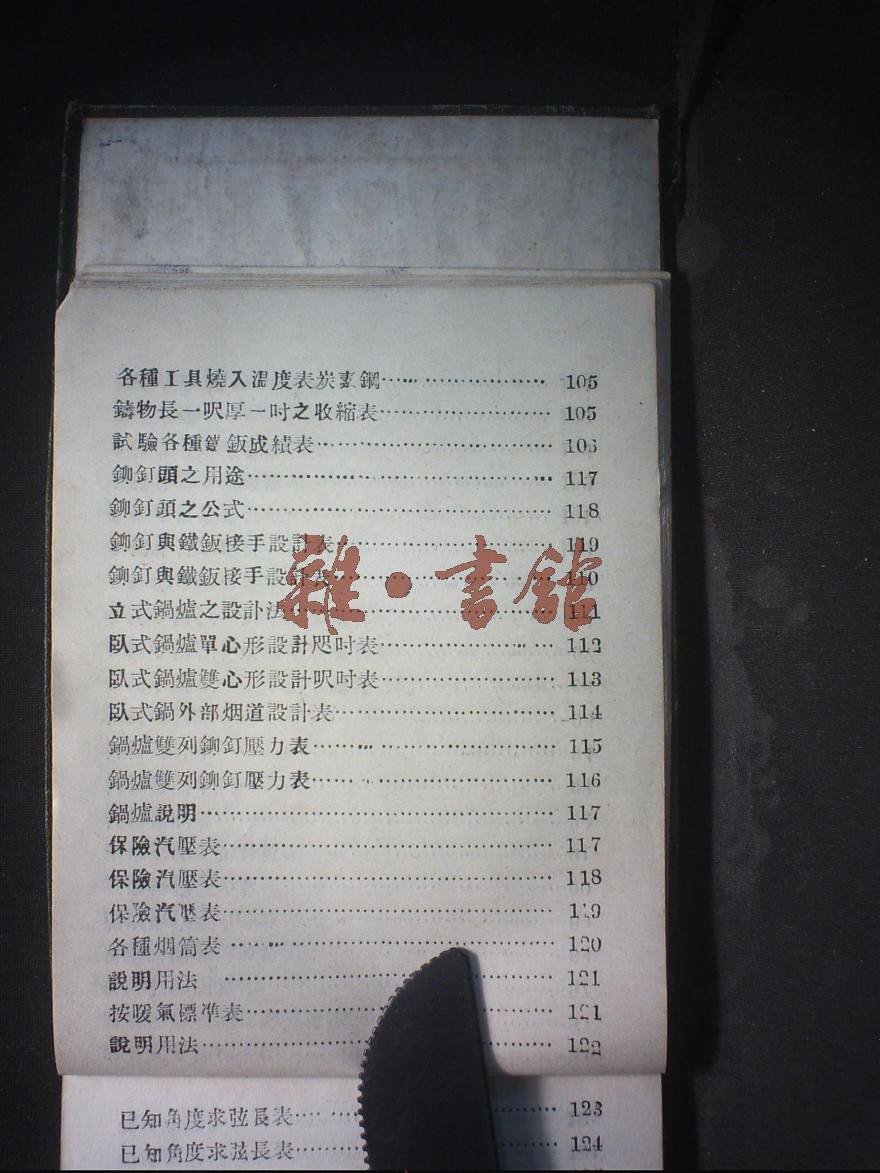 各種工具燒入溫度表炭素鋼…………………… 105
鑄物長一呎厚一吋之收縮表…………………… 105
試驗各種鐵鈑成績表…………………… 106
鉚釘頭之用途…………………… 117
鉚釘頭之公式…………………… 118
鉚釘與鐵鈑接手設計表…………………… 119
鉚釘與鐵鈑接手設計表…………………… 110
立式鍋爐之設計法…………………… 111
臥式鍋爐單心形設計呎吋表…………………… 112
臥式鍋爐雙心形設計呎吋表…………………… 113
臥式鍋外部烟道設計表…………………… 114
鍋爐雙列鉚釘壓力表…………………… 115
鍋爐雙列鉚釘壓力表…………………… 116
鍋爐說明…………………… 117
保險汽壓表…………………… 117
保險汽壓表…………………… 118
保險汽壓表…………………… 119
各種烟筒表…………………… 120
說明用法…………………… 121
按暖氣標準表…………………… 121
說明用法…………………… 122
已知角度求弦長表…………………… 123
已知角度求弦長表…………………… 124
雜·書館